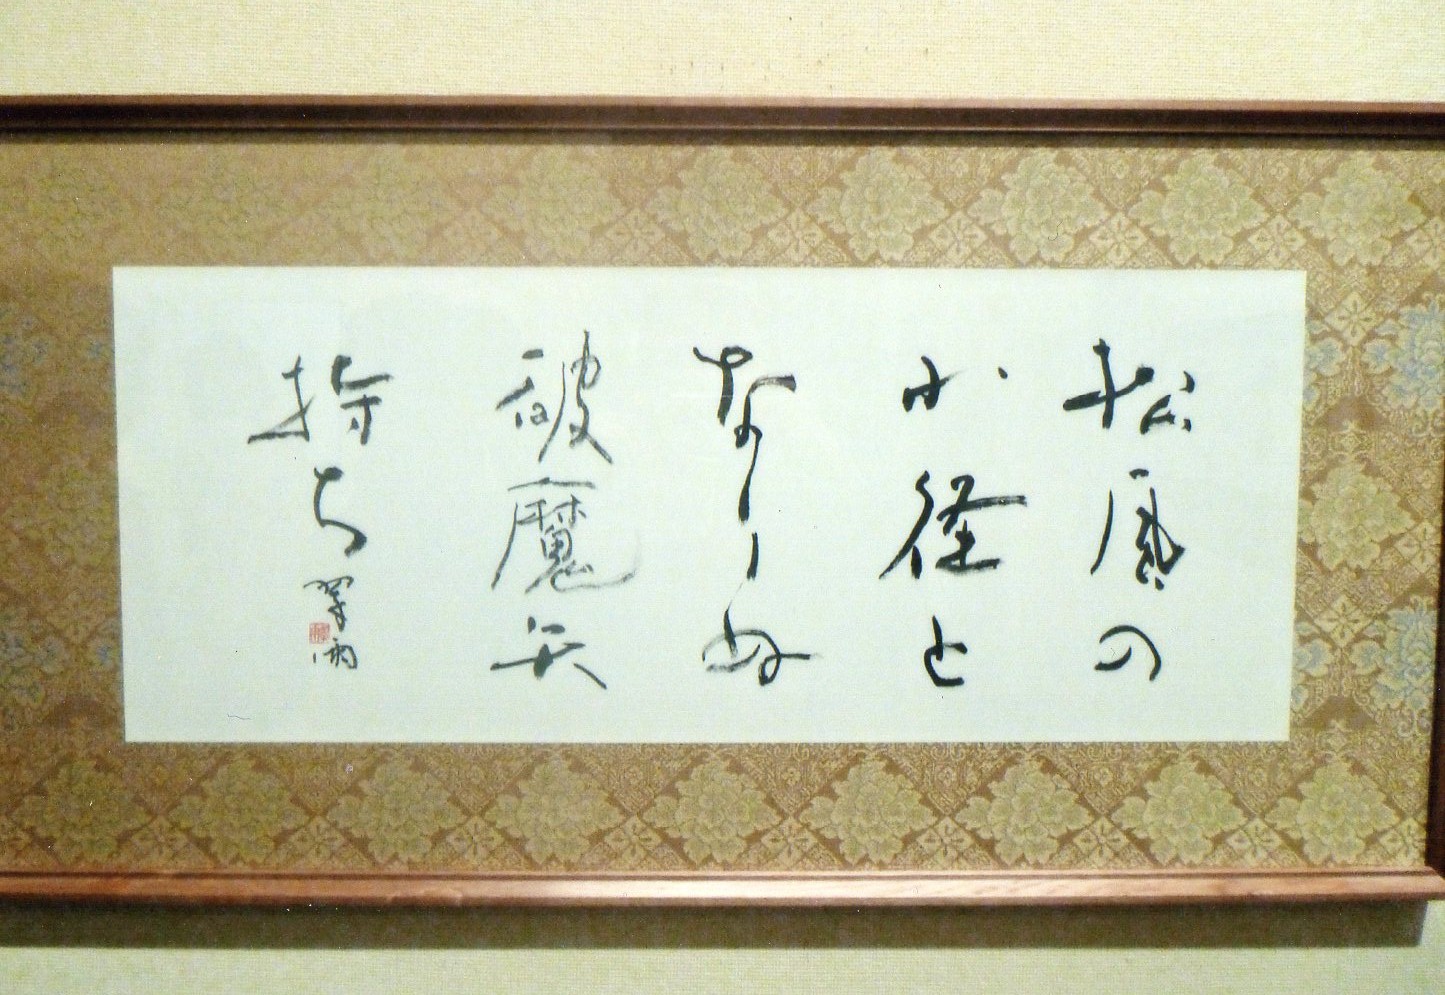 松風の
小径と
なりぬ
破魔矢
持ち
翠雨